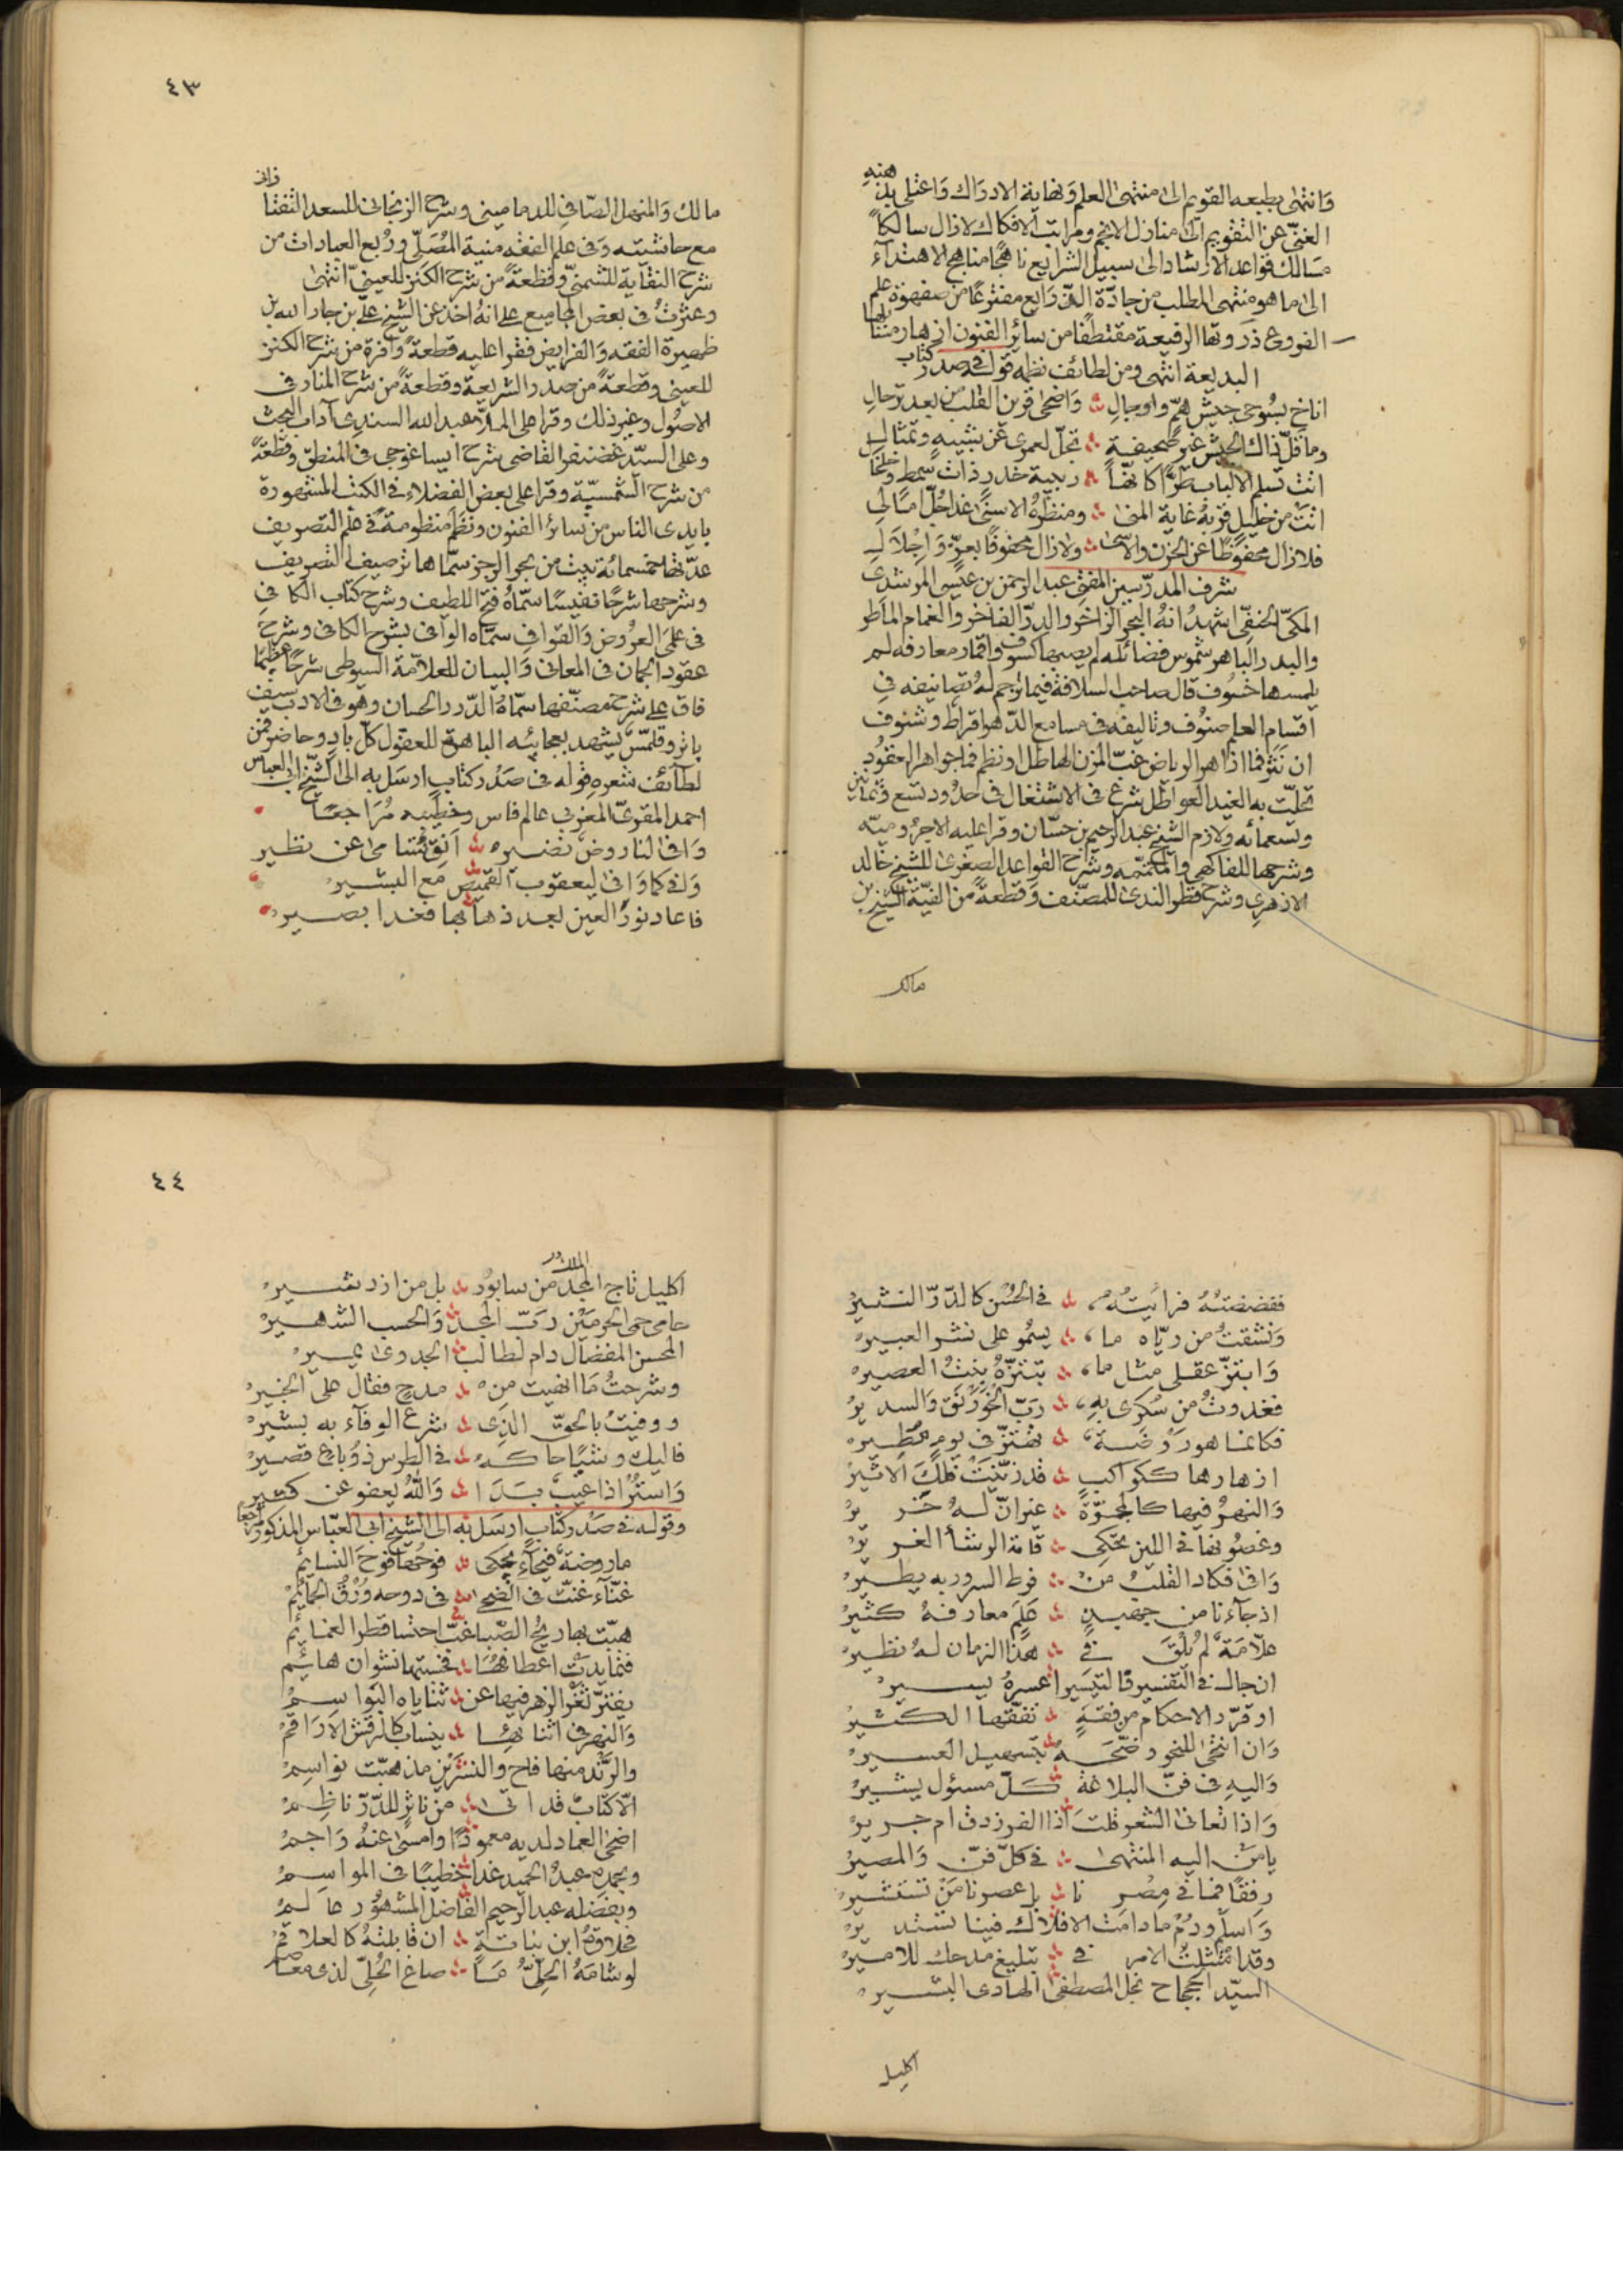 وانتهى بطبعه القويم الى منتهى العلم ونهاية الادراك واعتلى بذهنه
الغنى عن التقويم الى منازل الانجم ومراتب الافلاك لازال سالكاً
مسالك قواعد الارشاد الى سبيل الشرايع ناهجًا مناهج الاهتدآء
الى ما هو منتهى المطلب من جادّة الذرايع مفترعًا من صهوة علم
الفروع ذروتها الرفيعة مقتطفًا من سائر الفنون ازهار
البديعة انتهى ومن لطائف نظمه قوله فى صدر كتاب
اناخ بسوحى جيش همّ واوجال ؞ واضحى قرين القلب من بعد ترحال
وما قلّ ذاك الجيش غير صحيفة ؞ تجلّ لعمرى عن شبيه وتمثال
اتت تسلم الالباب طرّا كانها ؞ ربيبة خدر ذات سمط وخلخال
اتت من خليل قربه غاية المنى ؞ ومنظره الاسنى غدا جلّ امالى
فلازال محفوظًا عن الحزن والاسى ؞ ولازال محفوفًا بعزّ واجلال
شرف المدرّسين المفتى عبد الرحمن بن عيسى المرشدى
المكىّ الحنفىّ اشهد انه البحر الزاخر والدرّ الفاخر والغمام الماطر
والبدر الباهر شموس فضائله لم يصبها كسوف واقمار معارفه لم
يلمسها خسوف قال صاحب السلافة فيما ترجم له تصانيفه فى
اقسام العلم صنوف وتاليفه فى مسامع الدهر اقراط وشنوف
ان نثر فما ازاهر الرياض غبّ المزن الهاطل او نظم فما جواهر العقود
تحلّت به الغيد العواطل شرع فى الاشتغال فى حدود تسع وثمانين
وتسعمائه ولازم الشيخ عبد الرحيم بن حسّان وقرا عليه الاجروميّه
وشرحها للفاكهى والمتممّه وشرح القواعد الصغرى للشيخ خالد
الازهرى وشرح قطر الندى للمصنّف وقطعةً من الفيّة الشيخ بن
مالك
٤٣
مالك والمنهل الصّافى للدمامينى وشرح الزنجانى للسعد التفتازانى
مع حاشيته وفى علم الفقه منية المصلّى وربع العبادات من
شرح النقاية للشمنىّ وقطعةً من شرح الكنز للعينىّ انتهى
وعثرت فى بعض المجاميع على انهُ اخذ عن الشيخ علىّ بن جار الله بن
ظهيرة الفقه والفرايض فقرا عليه قطعةً وافرة من شرح الكنز
للعينى وقطعةً من صدر الشريعة وقطعةً من شرح المنار فى
الاصول وغير ذلك وقرا على الملا عبد الله السندى آداب البحث
وعلى السيّد غضنفر القاضى شرح ايساغوجى فى المنطق وقطعةً
من شرح الشمسيّة وقرا على بعض الفضلاء فى الكتب المشهورة
بايدى الناس من سائر الفنون ونظم منظومة فى علم التصريف
عدّتها خمسمائة بيت من بحر الرجز سمّاها ترصيف التصريف
وشرحها شرحًا نفيسًا سمّاهُ فتح اللطيف وشرح كتاب الكافى
فى علمى العروض والقوافى سمّاه الوافى بشرح الكافى وشرح
عقود الجمان فى المعانى والبيان للعلامة السيوطى شرحًا عظيمًا
فاق على شرح مصنّفها سمّاهُ الدّرر الحسان وهو فى الادب سيف
باتر وقلمّس يشهد بعجائبه الباهرة للعقول كلّ بادٍ وحاضر فمن
لطآئف شعره قوله فى صدر كتاب ارسل به الى الشيخ ابى العباس
احمد المقرىّ المغربى عالم فاس وخطيبه مُراجعًا
وافى لنا روض نضير ؞ انق تسامى عن نظير
وافى كما وافى ليعقوب ؞ القميص مع البشير
فاعاد نور العين بعد ذهابها فغدا بصير
ففضضتهُ فرايتهُ ؞ فى الحسن كالدّرّ النثير
ونشقتُ من ريّاه ما ؞ يسمو على نشر العبير
وابتزّ عقلى مثل ما ؞ تبتزّهُ بنت العصير
فغدوت من سكرى به ؞ ربّ الخورنق والسدير
فكانما هو روضة ؞ تهتزّ فى يوم مطير
ازهارها ككواكب ؞ قد زيّنت فلك الاثير
والنهر فيها كالمجرّة ؞ عنوانٌ له خرير
وغصونها فى اللين تحكى ؞ قامة الرشأ الغرير
وافى فكاد القلب من ؞ فرط السرور به يطير
اذ جآءنا من جهبذٍ ؞ علم معارفهُ كثير
علّامة لم يُلق فى ؞ هذا الزمان لهُ نظير
ان جال فى التفسير قالتيسير اعسرهُ يسير
او قرّر الاحكام من فقهٍ ؞ تفقّهها الكثير
وان انتحى للنحو وضّحه بتسهيل العسير
واليه فى فنّ البلاغة ؞ كلّ مسئول يشير
واذا تعانى الشعر قلت أذا الفرزدق ام جرير
يا من اليه المنتهى ؞ فى كلّ فنّ والمصير
رفقًا فما فى مصرنا ؞ بل عصرنا من تستشير
واسلم ودُم ما دامت الافلاك فينا تستدير
وقد امتثلت الامر فى ؞ تبليغ مدحك للامير
السيّد الجحجاح نجل المصطفى الهادى البشير
اكليل
٤٤
اكليل تاج الملك من سابور ؞ بل من ازدشير
حامى حمى الحرمين ربّ المجد والحسب الشهير
المحسن المفضال دام لطالب الجدوى يمير
وشرحتُ ما انهيت من ؞ مدحٍ فقال على الخبير
ووفيتُ بالحقّ الذى ؞ شرع الوفآء به بشير
فاليك وشيًا حاكه ؞ فى الطرس ذو باع قصير
واستر اذا عيب بدا ؞ والله يعفو عن كثير
وقوله فى صدر كتاب ارسل به الى الشيخ ابى العبّاس المذكور
ما روضة فيحآء يحكى ؞ فوحها فوح النسائم
غنّاء غنّت فى الضحى ؞ فى دوحه وُرْقُ الحمائم
هبّت بها ريح الصّبا غبّ احتسا قطر الغمائم
فتمايدت اعطافها ؞ فحسبتها نشوان هائم
يفترّ ثغر الزهر فيها عن ؞ ثناياه البواسم
والنهر فى اثنائها ؞ ينساب كالرقش الاراقم
والرّند منها فاح والنشرين مذ هبّت نواسم
الّا كتاب قد اتى ؞ من ناثرٍ للدّرّ ناظم
اضحى العماد لديه معمودًا وامسى عنهُ واجم
وبحمده عبد الحميد غدا خطيبًا فى المواسم
وبفضله عبد الرحيم الفاضل المشهور عالم
فحلاوة ابن نباتة ؞ ان قابلتهُ كالعلاقم
لو شامهُ الحلىّ ما ؞ صاغ الحُلىّ لذى معاصم